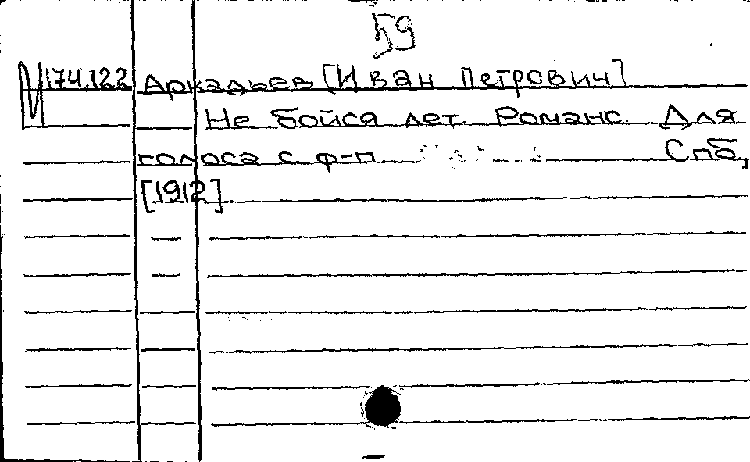 59
М 174.122 Аркадьев [Иван Петрович]
Не бойся лет. Романс. Для
голоса с ф-п. Спб,
[1912].